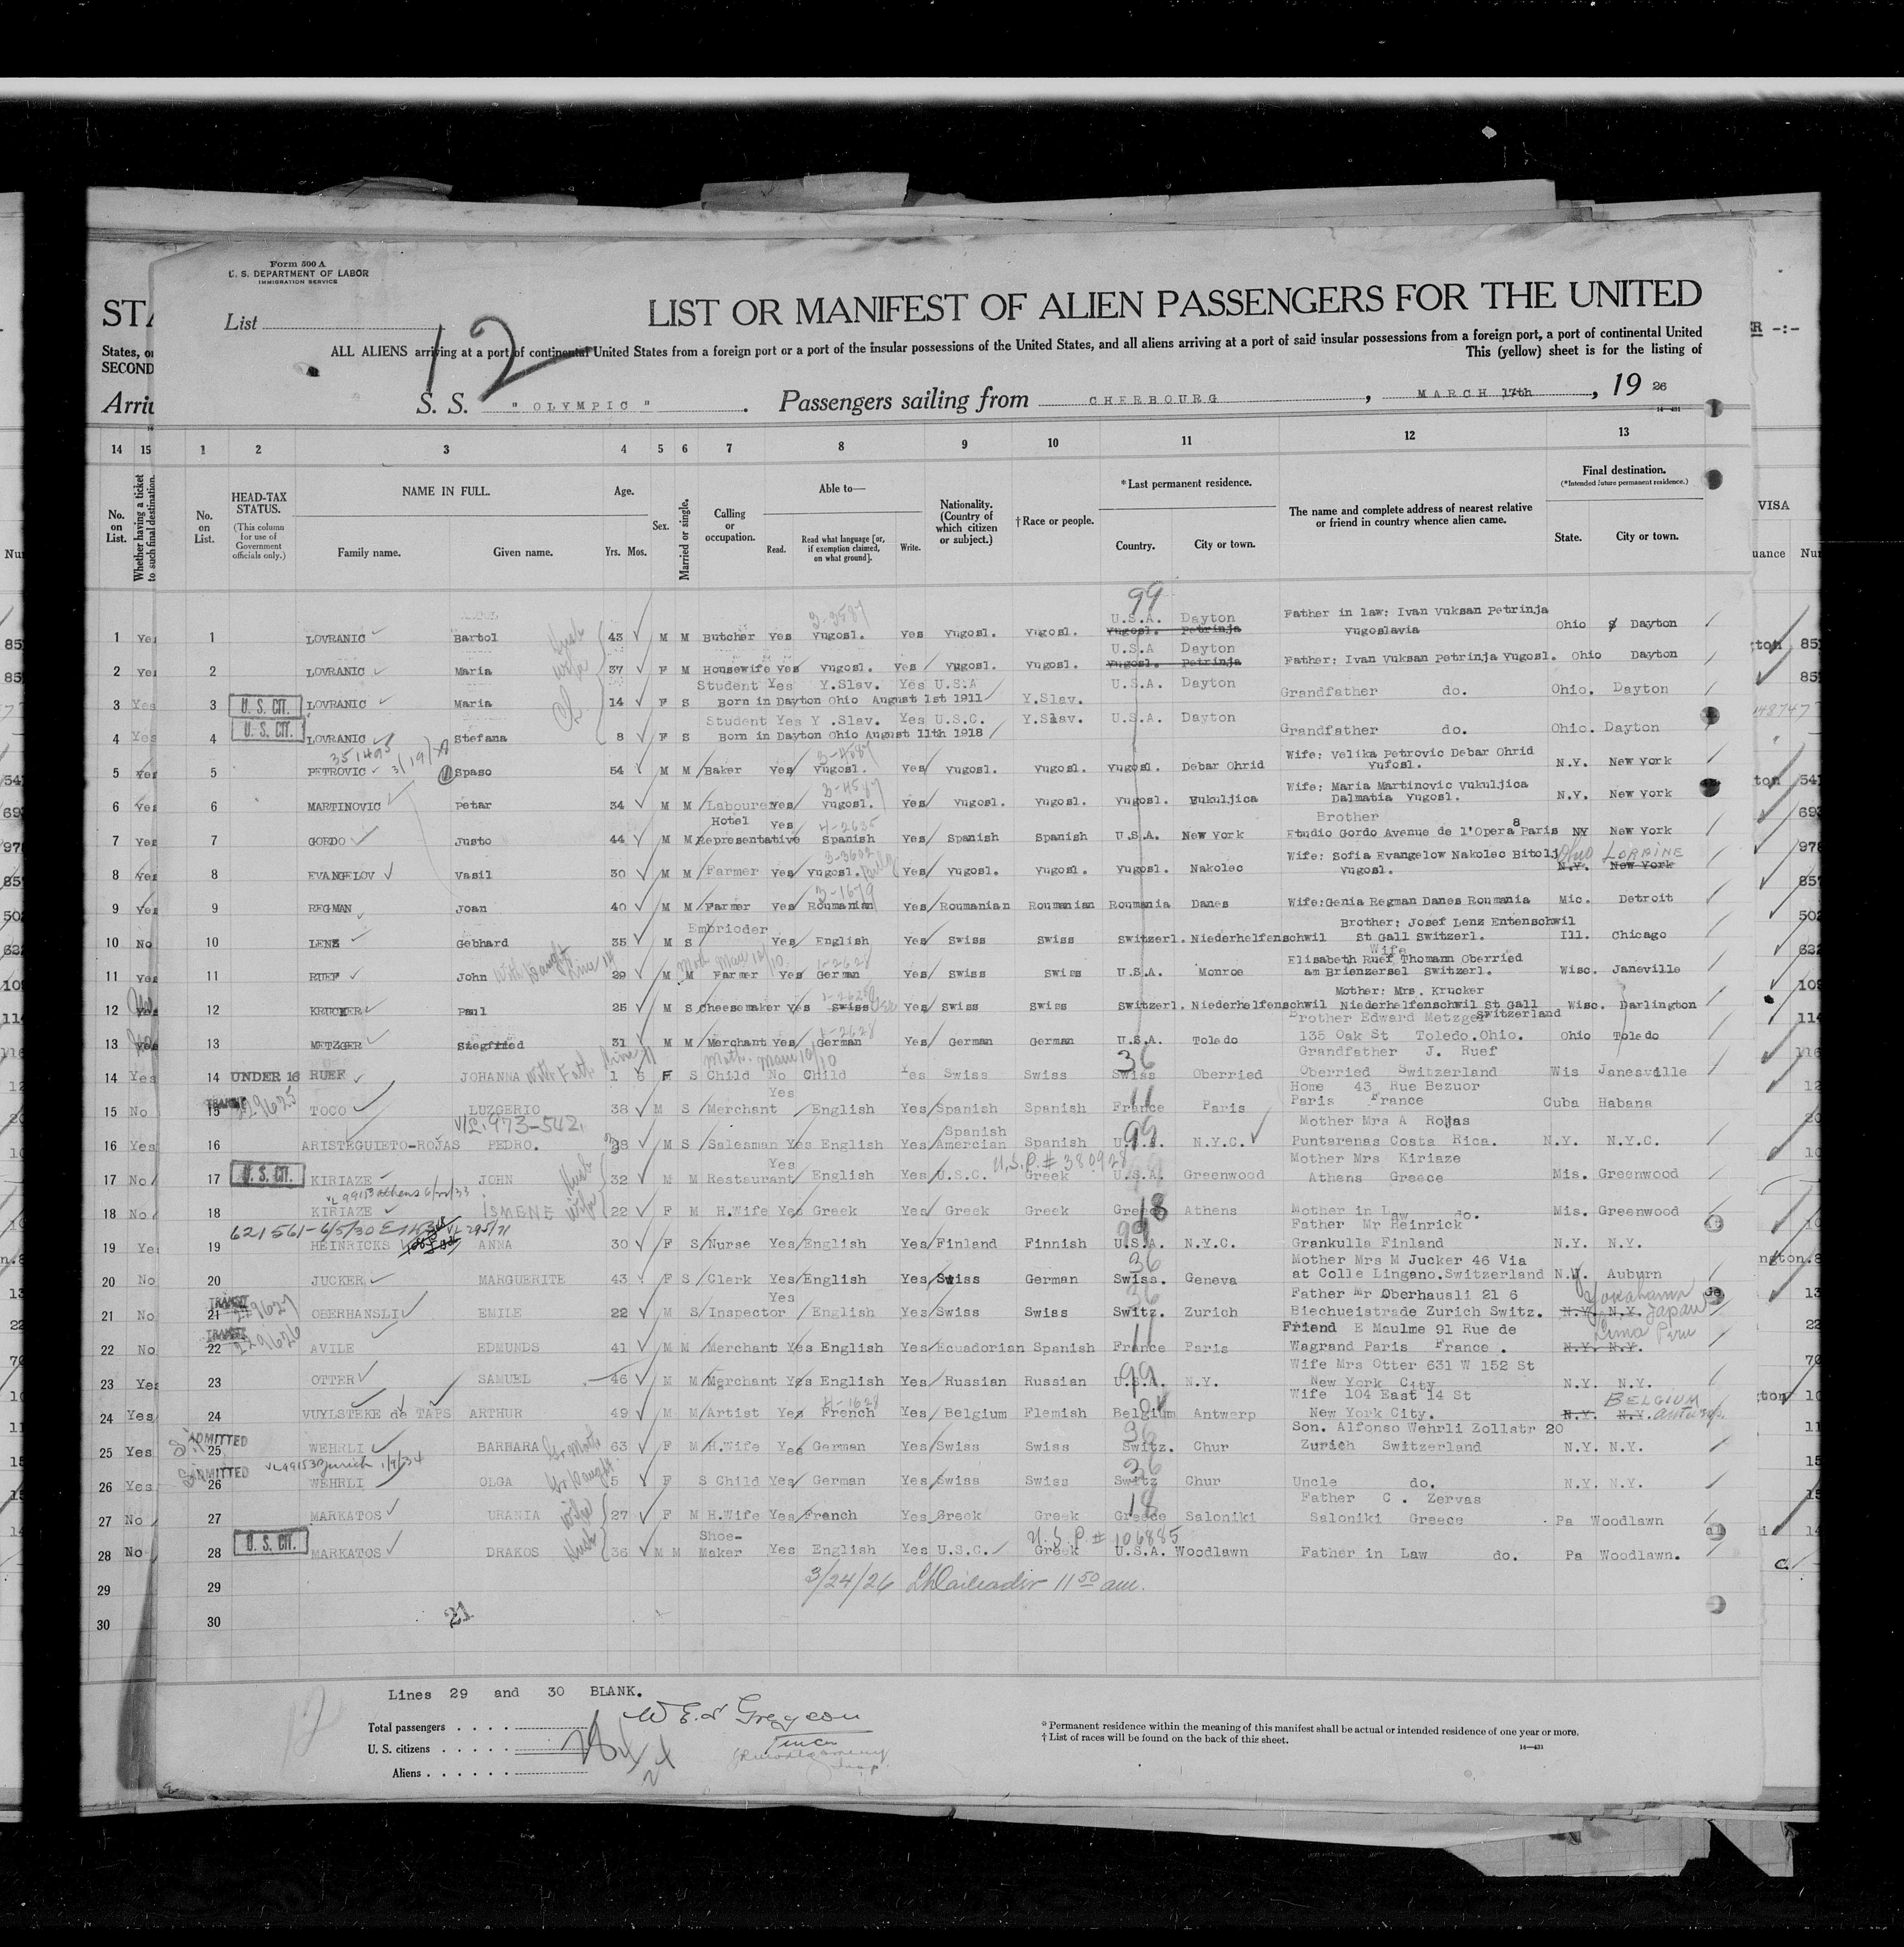 Form 500 A
U. S. DEPARTMENT OF LABOR
IMMIGRATION SERVICE
LIST OR MANIFEST OF ALIEN PASSENGERS FOR THE UNITED
STA
List
12
States, or
SECOND
ALL ALIENS arriving at a port of continental United States from a foreign port or a port of the insular possessions of the United States, and all aliens arriving at a port of said insular possessions from a foreign port, a port of continental United
This (yellow) sheet is for the listing of
S. S. " OLYMPIC " . Passengers sailing from CHERBOURG , MARCH 17th , 19 26
14—431
14 15 1 2 3 4 5 6 7 8 9 10 11 12 13
No. on List.
Whether having a ticket to such final destination.
No. on List.
HEAD-TAX STATUS.
(This column for use of Government officials only.)
NAME IN FULL.
Family name. Given name.
Age.
Yrs. Mos.
Sex.
Married or single.
Calling or occupation.
Able to—
Read. Read what language [or, if exemption claimed, on what ground]. Write.
Nationality. (Country of which citizen or subject.)
† Race or people.
* Last permanent residence.
Country. City or town.
The name and complete address of nearest relative or friend in country whence alien came.
Final destination.
(*Intended future permanent residence.)
State. City or town.
VISA
99
1 Yes 1 LOVRANIC Bartol Husb 43 M M Butcher Yes Yugosl. Yes Yugosl. Yugosl. U.S.A. Dayton Yugosl. Petrinja Father in law: Ivan Vuksan Petrinja Yugoslavia Ohio Dayton
2 Yes 2 LOVRANIC Maria Wife 37 F M Housewife Yes Yugosl. Yes Yugosl. Yugosl. U.S.A Dayton Yugosl. Petrinja Father: Ivan Vuksan Petrinja Yugosl. Ohio Dayton
3 Yes 3 U. S. CIT. LOVRANIC Maria 14 F S Student Yes Y.Slav. Yes U.S.A Born in Dayton Ohio August 1st 1911 Y.Slav. U.S.A. Dayton Grandfather do. Ohio. Dayton
4 Yes 4 U. S. CIT. LOVRANIC Stefana 8 F S Student Yes Y .Slav. Yes U.S.C. Born in Dayton Ohio August 11th 1918 Y.Slav. U.S.A. Dayton Grandfather do. Ohio. Dayton
5 Yes 5 PETROVIC Spaso 54 M M Baker Yes Yugosl. Yes Yugosl. Yugosl. Yugosl. Debar Ohrid Wife: Velika Petrovic Debar Ohrid Yufosl. N.Y. New York
6 Yes 6 MARTINOVIC Petar 34 M M Labourer Yes Yugosl. Yes Yugosl. Yugosl. Yugosl. Vukuljica Wife: Maria Martinovic Vukuljica Dalmatia Yugosl. N.Y. New York
7 Yes 7 GORDO Justo 44 M M Hotel Representative Yes 4-2635 Spanish Yes Spanish Spanish U.S.A. New York Brother Etudio Gordo Avenue de l'Opera 8 Paris NY New York
8 Yes 8 EVANGELOV Vasil 30 M M Farmer Yes Yugosl. Yes Yugosl. Yugosl. Yugosl. Nakolec Wife: Sofia Evangelow Nakolec Bitolj Yugosl. Ohio LORRAINE N.Y. New York
9 Yes 9 REGMAN Joan 40 M M Farmer Yes 3-1679 Roumanian Yes Roumanian Roumanian Roumania Danes Wife:Genia Regman Danes Roumania Mic. Detroit
10 No 10 LENZ Gebhard 35 M S Embrioder Yes English Yes Swiss Swiss Switzerl. Niederhelfenschwil Brother: Josef Lenz Entenschwil St Gall Switzerl. Ill. Chicago
11 Yes 11 RUEF John 29 M M Farmer Yes 1-2628 German Yes Swiss Swiss U.S.A. Monroe Wife Elisabeth Ruef Thomann Oberried am Brienzersel Switzerl. Wisc. Janeville
12 Yes 12 KRUCKER Paul 25 M S Cheesemaker Yes Swiss Yes Swiss Swiss Switzerl. Niederhelfenschwil Mother: Mrs. Krucker Niederhelfenschwil St Gall Switzerland Wisc. Darlington
13 Yes 13 METZGER Siegfried 31 M M Merchant Yes German Yes German German U.S.A. Toledo Brother Edward Metzger 135 Oak St Toledo.Ohio. Ohio Toledo
14 Yes 14 UNDER 16 RUEF JOHANNA With Fath Line 11 1 6 F S Child No Child Yes Swiss Swiss 36 Swiss Oberried Grandfather J. Ruef Oberried Switzerland Wis Janesville
15 No 15 TRANSIT 229625 TOCO LUZGERIO 38 M S Merchant Yes English Yes Spanish Spanish 11 France Paris Home 43 Rue Bezuor Paris France Cuba Habana
VL.973-542.
16 Yes 16 ARISTEGUIETO-ROJAS PEDRO. 28 M S Salesman Yes English Yes Spanish Amercian Spanish 99 U.S.A. N.Y.C. Mother Mrs A Rojas Puntarenas Costa Rica. N.Y. N.Y.C.
17 No 17 U. S. CIT. KIRIAZE JOHN Husb 32 M M Restaurant Yes English Yes U.S.C. U.S.P.# 380928 Greek U.S.A. Greenwood Mother Mrs Kiriaze Athens Greece Mis. Greenwood
VL 99153 Athens 6/22/33
18 No 18 KIRIAZE ISMENE Wife 22 F M H.Wife Yes Greek Yes Greek Greek 18 Greece Athens Mother in Law do. Mis. Greenwood
621561-6/5/30
19 Yes 19 HEINRICKS ANNA 30 F S Nurse Yes English Yes Finland Finnish 99 U.S.A. N.Y.C. Father Mr Heinrick Grankulla Finland N.Y. N.Y.
20 No 20 JUCKER MARGUERITE 43 F S Clerk Yes English Yes Swiss German 36 Swiss. Geneva Mother Mrs M Jucker 46 Via at Colle Lingano.Switzerland N.Y. Auburn
21 No 21 TRANSIT 229627 OBERHANSLI EMILE 22 M S Inspector Yes English Yes Swiss Swiss 36 Switz. Zurich Father Mr Oberhausli 21 6 Biechueistrade Zurich Switz. N.Y. N.Y. Yokahama Japan
22 No 22 TRANSIT 229626 AVILE EDMUNDS 41 M M Merchant Yes English Yes Ecuadorian Spanish 11 France Paris Friend E Maulme 91 Rue de Wagrand Paris France . N.Y. N.Y. Lima Peru
23 Yes 23 OTTER SAMUEL 46 M M Merchant Yes English Yes Russian Russian 99 U.S.A. N.Y. Wife Mrs Otter 631 W 152 St New York City N.Y. N.Y.
24 Yes 24 VUYLSTEKE de TAPS ARTHUR 49 M M Artist Yes 4-1628 French Yes Belgium Flemish Belgium Antwerp Wife 104 East 14 St New York City. N.Y. N.Y. BELGIUM Antwerp.
25 Yes 25 ADMITTED WEHRLI BARBARA Gr. Moth. 63 F M H.Wife Yes German Yes Swiss Swiss 36 Switz. Chur Son. Alfonso Wehrli Zollstr 20 Zurich Switzerland N.Y. N.Y.
VL 99153 Zurich 1/9/34
26 Yes 26 ADMITTED WEHRLI OLGA Gr. Daught. 5 F S Child Yes German Yes Swiss Swiss 36 Switz Chur Uncle do. N.Y. N.Y.
27 No 27 MARKATOS URANIA Wife 27 F M H.Wife Yes French Yes Greek Greek 18 Greece Saloniki Father C . Zervas Saloniki Greece Pa Woodlawn
28 No 28 U. S. CIT. MARKATOS DRAKOS Husb 36 M M Shoe-Maker Yes English Yes U.S.C. U.S.P.# 106885 Greek U.S.A. Woodlawn Father in Law do. Pa Woodlawn.
29 29 3/24/26 11 50 am.
30 30 21
Lines 29 and 30 BLANK.
Total passengers . . . .
U. S. citizens . . . . .
Aliens . . . . . .
* Permanent residence within the meaning of this manifest shall be actual or intended residence of one year or more.
† List of races will be found on the back of this sheet.
14—431